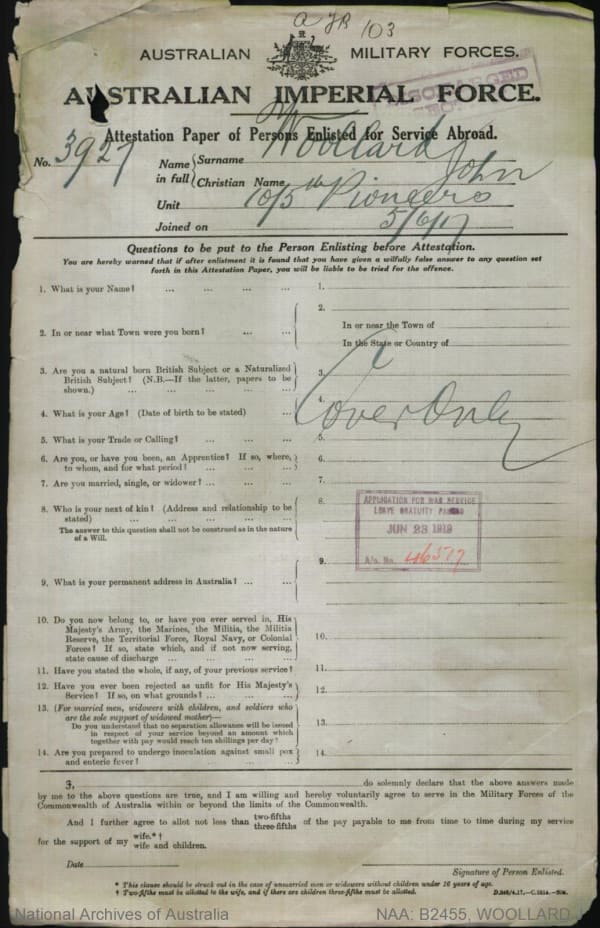 103
AUSTRALIAN MILITARY FORCES.
AUSTRALIAN IMPERIAL FORCE.
DISCHARGED
Attestation Paper of Persons Enlisted for Service Abroad.
No. 3927
Name in full { Surname Woollard
Christian Name John
Unit 10/5th Pioneers
Joined on 5/6/17
Questions to be put to the Person Enlisting before Attestation.
You are hereby warned that if after enlistment it is found that you have given a wilfully false answer to any question set
forth in this Attestation Paper, you will be liable to be tried for the offence.
1. What is your Name? ... ... ... ... 1.
2. In or near what Town were you born? ... ... 2.
In or near the Town of
In the State or Country of
3. Are you a natural born British Subject or a Naturalized
British Subject? (N.B.—If the latter, papers to be
shown.) ... ... ... ... ... 3.
4. What is your Age? (Date of birth to be stated) ... 4.
Cover Only
5. What is your Trade or Calling? ... ... ... 5.
6. Are you, or have you been, an Apprentice? If so, where,
to whom, and for what period? ... ... ... 6.
7. Are you married, single, or widower? ... ... ... 7.
8. Who is your next of kin? (Address and relationship to be
stated) ... ... ... ... ... 8.
The answer to this question shall not be construed as in the nature
of a Will.
APPLICATION FOR WAR SERVICE
LEAVE GRATUITY PASSED
JUN 23 1919
A/c. No. 46517
9. What is your permanent address in Australia? ... ... 9.
10. Do you now belong to, or have you ever served in, His
Majesty's Army, the Marines, the Militia, the Militia
Reserve, the Territorial Force, Royal Navy, or Colonial
Forces? If so, state which, and if not now serving,
state cause of discharge ... ... ... ... 10.
11. Have you stated the whole, if any, of your previous service? 11.
12. Have you ever been rejected as unfit for His Majesty's
Service? If so, on what grounds? ... ... ... 12.
13. (For married men, widowers with children, and soldiers who
are the sole support of widowed mother)—
Do you understand that no separation allowance will be issued
in respect of your service beyond an amount which
together with pay would reach ten shillings per day? 13.
14. Are you prepared to undergo inoculation against small pox
and enteric fever? ... ... ... ... 14.
I, do solemnly declare that the above answers made
by me to the above questions are true, and I am willing and hereby voluntarily agree to serve in the Military Forces of the
Commonwealth of Australia within or beyond the limits of the Commonwealth.
And I further agree to allot not less than two-fifths three-fifths of the pay payable to me from time to time during my service
for the support of my wife.*† wife and children.
Date
Signature of Person Enlisted.
* This clause should be struck out in the case of unmarried men or widowers without children under 16 years of age.
† Two-fifths must be allotted to the wife, and if there are children three-fifths must be allotted.
National Archives of Australia
NAA: B2455, WOOLLARD